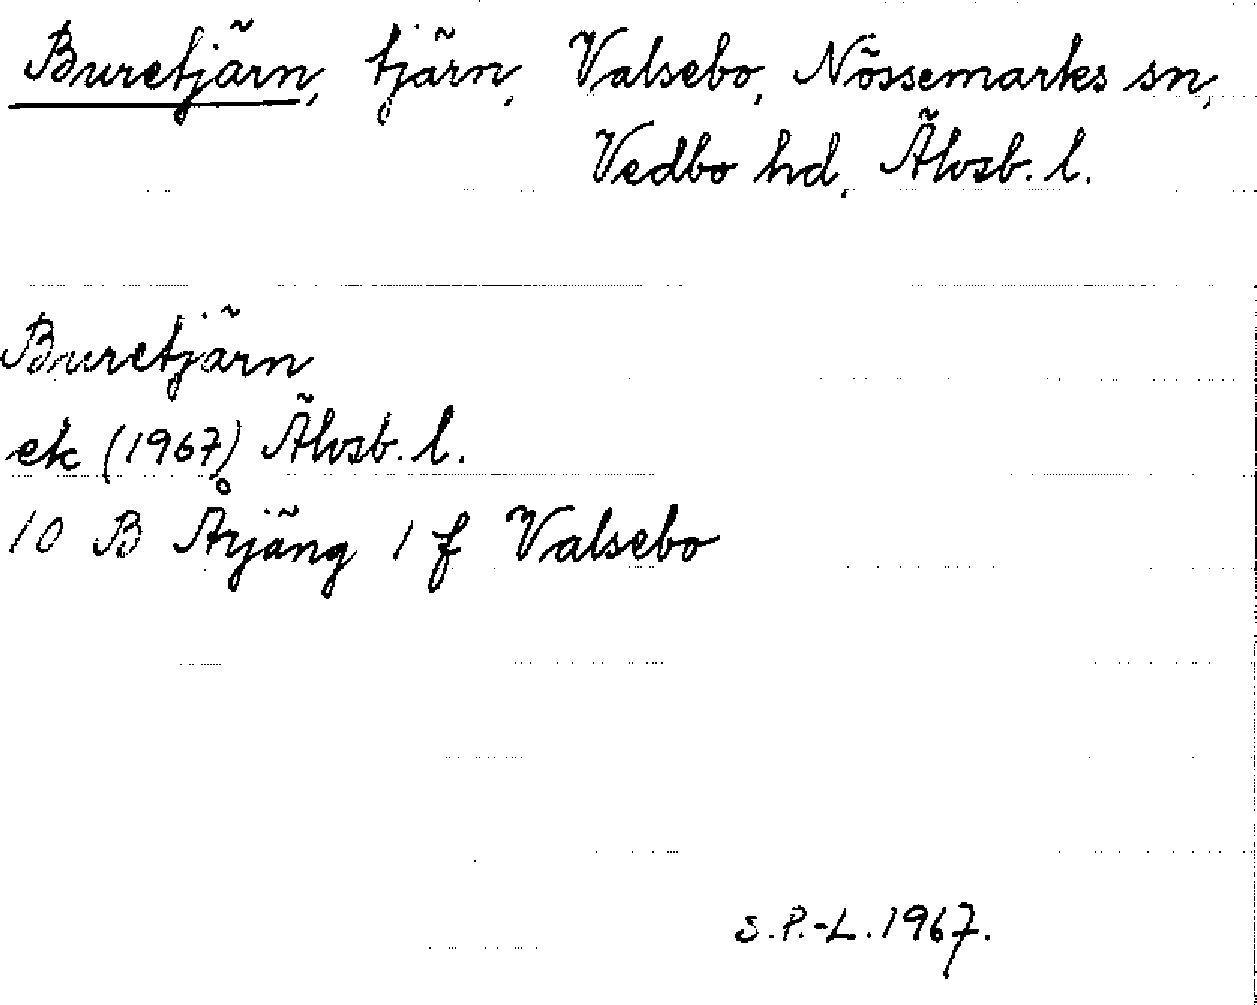 Buretjärn, tjärn, Valsebo, Nössemarks sn,
Vedbo hd, Älvsb. l.
Buretjärn
ek (1967) Älvsb. l.
10 B Årjäng 1 f Valsebo
S.P.-L. 1967.